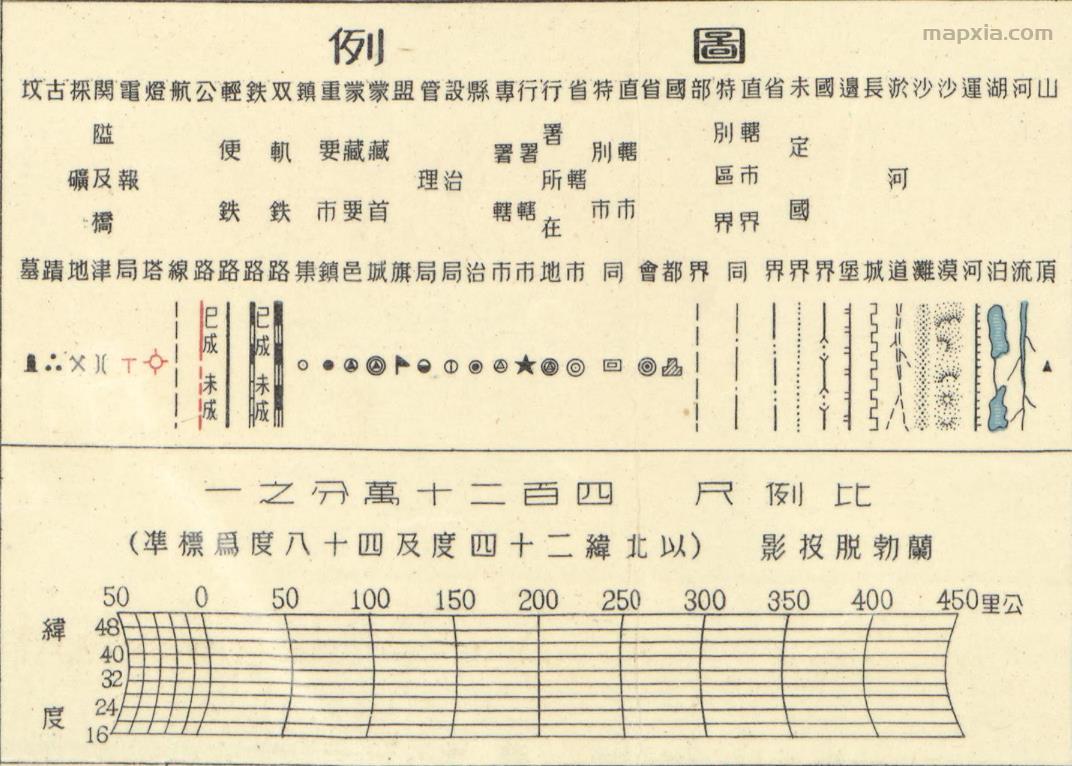 圖例
山頂
河流
湖泊
運河
沙漠
沙灘
淤河道
長城
邊堡
國界
未定國界
省界
直轄市界
特別區界
同
部界
國都
省會
直轄市
特別市
同
省轄市
行署所在地
行署轄市
專署轄市
縣治
設治局
管理局
盟旗
蒙藏首城
蒙藏要邑
重要市鎮
鎮集
双軌鉄路
鉄路
輕便鉄路
公路
航線
燈塔
電報局
関隘及橋津
採礦地
古蹟
坟墓
已成 未成
已成 未成
比例尺 四百二十萬分之一
蘭勃脱投影 (以北緯二十四度及四十八度爲標準)
50 0 50 100 150 200 250 300 350 400 450 公里
緯度
48
40
32
24
16
mapxia.com